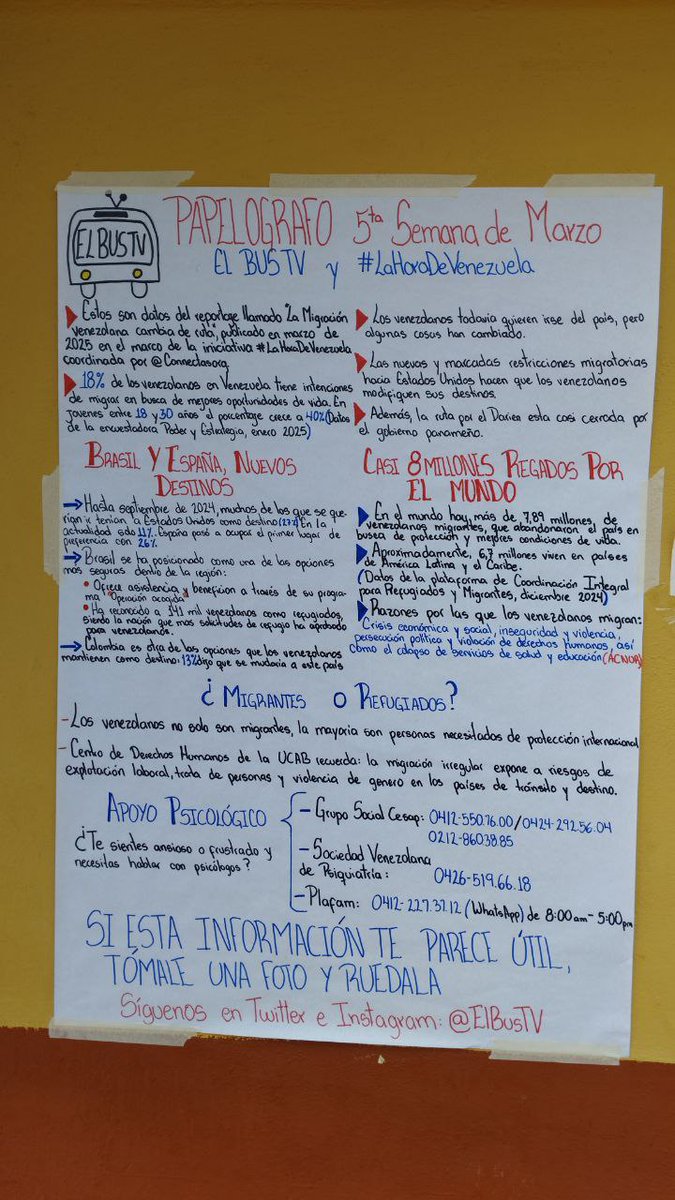 EL BUS TV
PAPELOGRAFO 5ta Semana de Marzo
EL BUS TV y #LaHoraDeVenezuela
Estos son datos del reportaje llamado "La Migración
venezolana cambia de ruta", publicado en marzo de
2025 en el marco de la iniciativa #LaHoraDeVenezuela
coordinada por @Connectasorg
18% de los venezolanos en Venezuela tiene intenciones
de migrar en busca de mejores oportunidades de vida. En
jovenes entre 18 y 30 años el porcentaje crece a 40% (Datos
de la encuestadora Poder y Estrategia, enero 2025)
Los venezolanos todavía quieren irse del país, pero
algunas cosas han cambiado.
Las nuevas y marcadas restricciones migratorias
hacia Estados Unidos hacen que los venezolanos
modifiquen sus destinos.
Además, la ruta por el Darien esta casi cerrada por
el gobierno panameño.
BRASIL Y ESPAÑA, NUEVOS
DESTINOS
Hasta septiembre de 2024, muchos de los que se que-
rian ir tenian a Estados Unidos como destino (27%) En la
actualidad solo 11%. España pasó a ocupar el primer lugar de
preferencia con 26%
Brasil se ha posicionado como una de las opciones
mas seguras dentro de la región:
• Ofrece asistencia y benefician a través de su progra-
ma "Operación acogida"
• Ha reconocido a 341 mil venezolanos como refugiados,
siendo la nación que mas solicitudes de refugio ha aprobado
para venezolanos.
Colombia es otra de las opciones que los venezolanos
mantienen como destino: 13% dijo que se mudaria a este país
CASI 8 MILLONES REGADOS POR
EL MUNDO
En el mundo hay, más de 7,89 millones, de
venezolanos migrantes, que abandonaron el país en
busca de protección y mejores condiciones de vida.
Aproximadamente, 6,7 millones viven en países
de América Latina y el Caribe.
(Datos de la plataforma de Coordinación Integral
para Refugiados y Migrantes, diciembre 2024)
Razones por las que los venezolanos migran:
Crisis económica y social, inseguridad y violencia,
persecución política y violación de derechos humanos, así
como el colapso de servicios de salud y educación (ACNUR)
¿MIGRANTES O REFUGIADOS?
- Los venezolanos no solo son migrantes, la mayoría son personas necesitados de protección internacional
- Centro de Derechos Humanos de la UCAB recuerda: la migración irregular expone a riesgos de
explotación laboral, trata de personas y violencia de genero en los países de tránsito y destino.
APOYO PSICOLÓGICO
¿Te sientes ansioso o frustrado y
necesitas hablar con psicólogos?
- Grupo Social Cesap: 0412-550.76.00/0424-292.56.04
0212-8603885
- Sociedad Venezolana
de Psiquiatría: 0426-519.66.18
- Plafam: 0412-227.37.12 (WhatsApp) de 8:00am-5:00pm
SI ESTA INFORMACIÓN TE PARECE ÚTIL,
TÓMALE UNA FOTO Y RUEDALA
Síguenos en Twitter e Instagram: @ElBusTV